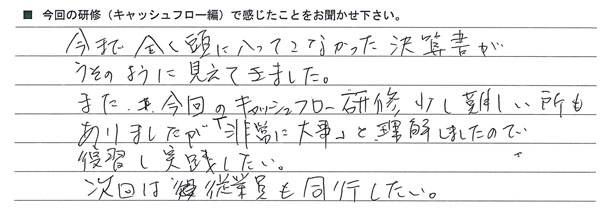 ■ 今回の研修（キャッシュフロー編）で感じたことをお聞かせ下さい。
今まで全く頭に入ってこなかった決算書が
うそのように見えてきました。
また、今回のキャッシュフロー研修少し難しい所も
ありましたが「非常に大事」と理解しましたので
復習し実践したい。
次回は従業員も同行したい。